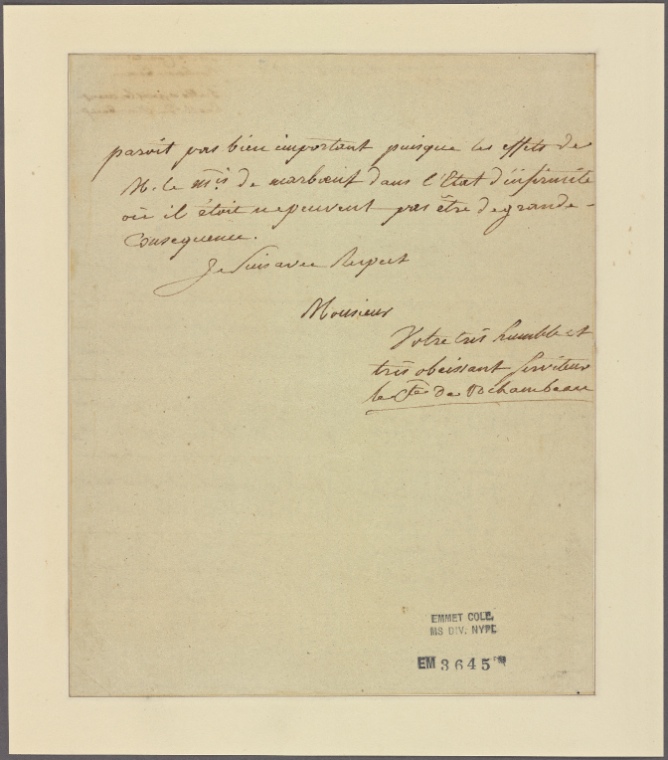 paroit pas bien important puisque les effets de
M. le M.is de marbœuf dans l'Etat d'infirmité
où il étoit ne peuvent pas être de grande-
Consequence.
Je suis avec Respect
Monsieur
Votre très humble et
très obeissant serviteur
le Cte de Rochambeau
EMMET COLL.
MS DIV. NYPL
EM 3645